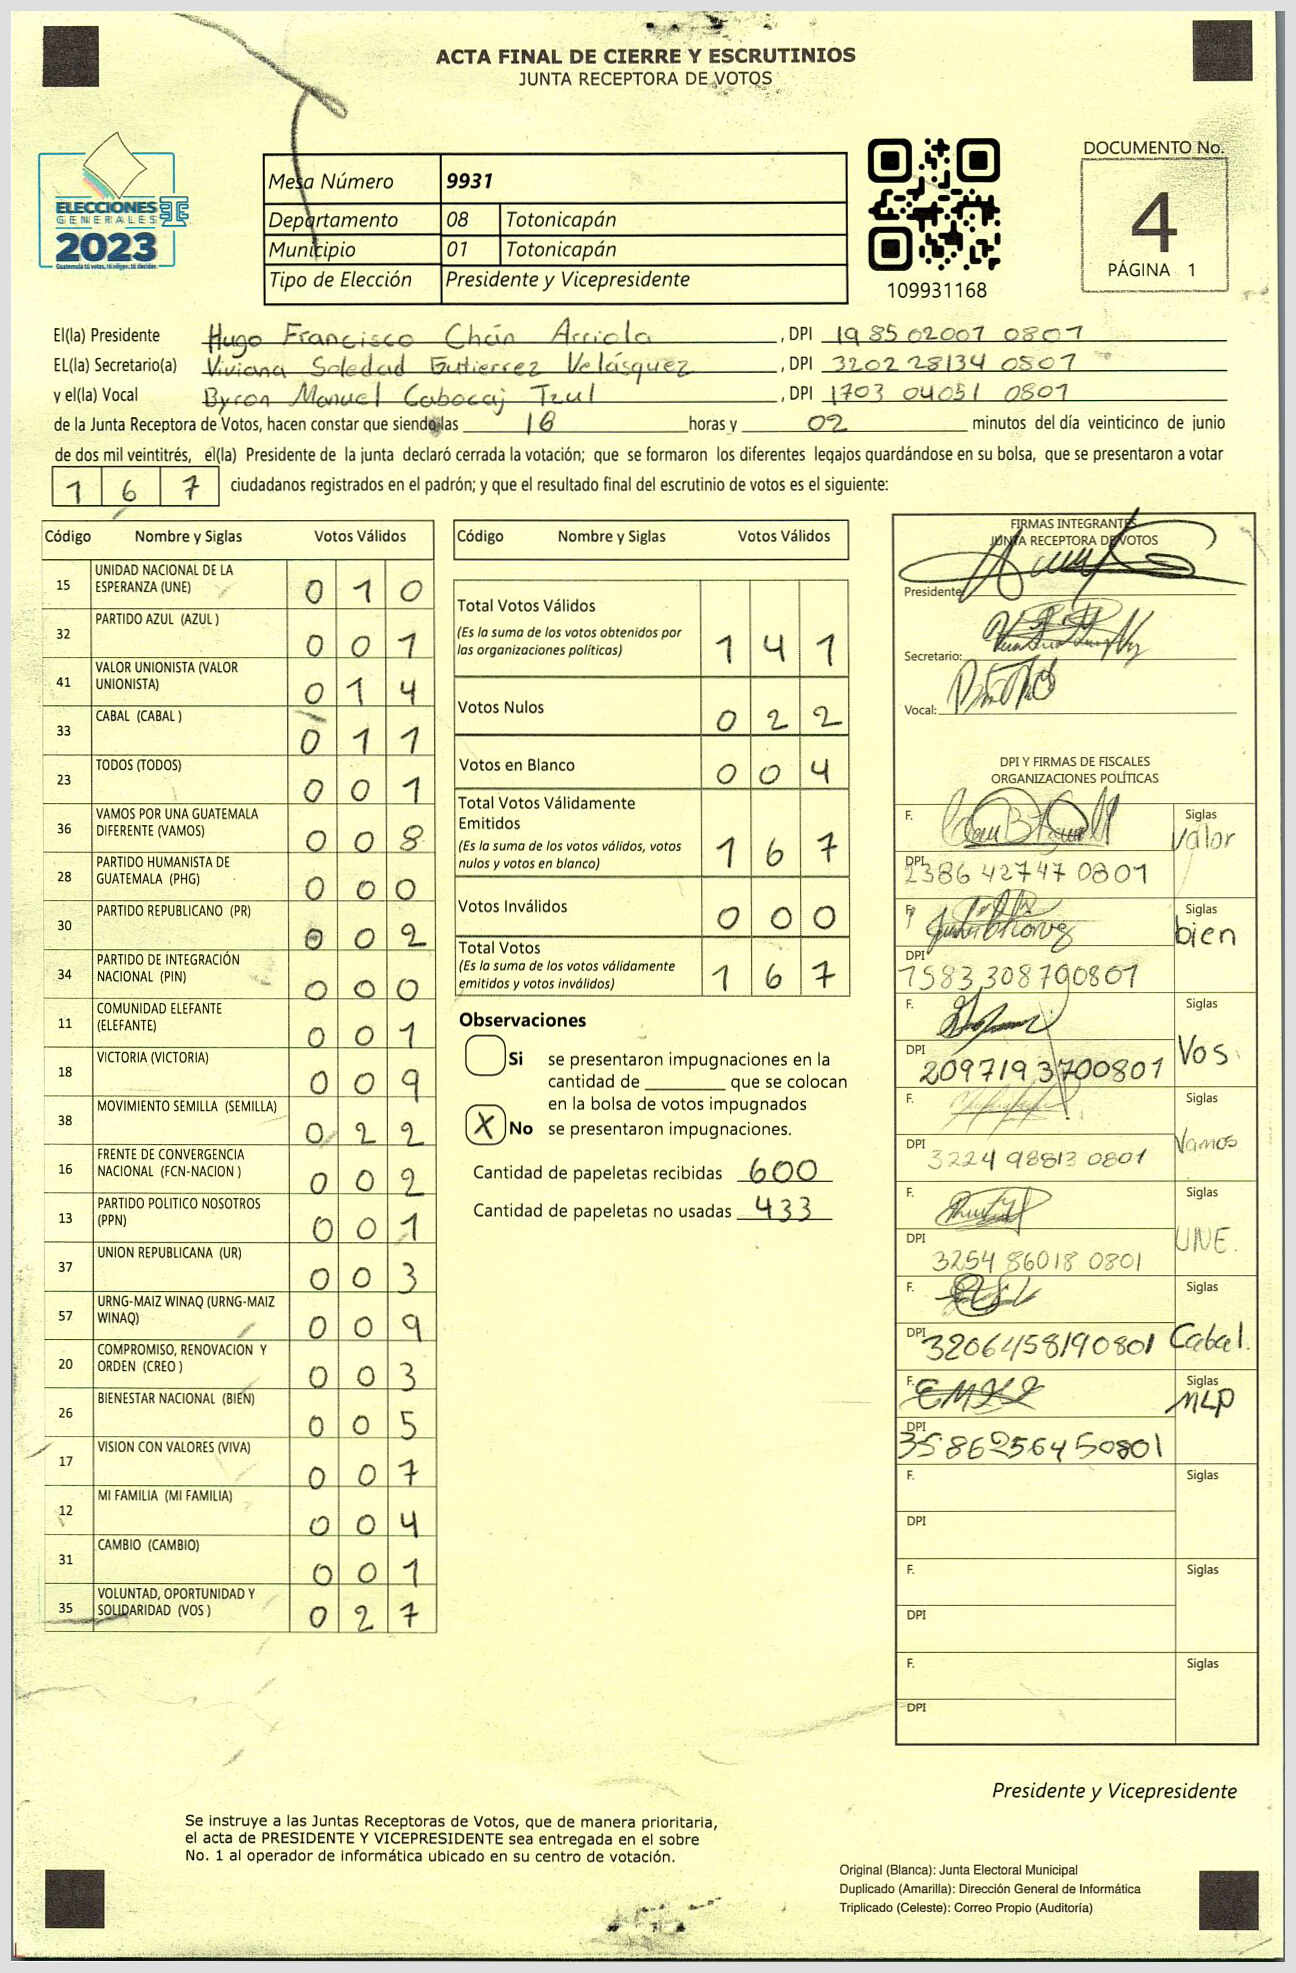 ACTA FINAL DE CIERRE Y ESCRUTINIOS
JUNTA RECEPTORA DE VOTOS
ELECCIONES
GENERALES
2023
Guatemala tú votas, tú eliges, tú decides
Mesa Número 9931
Departamento 08 Totonicapán
Municipio 01 Totonicapán
Tipo de Elección Presidente y Vicepresidente
109931168
DOCUMENTO No.
4
PÁGINA 1
El(la) Presidente Hugo Francisco Chán Arriola , DPI 1985 02007 0807
EL(la) Secretario(a) Viviana Soledad Gutierrez Velásquez , DPI 3202 28134 0807
y el(la) Vocal Byron Manuel Cabocaj Tzul , DPI 1703 04051 0801
de la Junta Receptora de Votos, hacen constar que siendo las 18 horas y 02 minutos del día veinticinco de junio
de dos mil veintitrés, el(la) Presidente de la junta declaró cerrada la votación; que se formaron los diferentes legajos guardándose en su bolsa, que se presentaron a votar
1 6 7 ciudadanos registrados en el padrón; y que el resultado final del escrutinio de votos es el siguiente:
Código Nombre y Siglas Votos Válidos
15 UNIDAD NACIONAL DE LA ESPERANZA (UNE) 0 1 0
32 PARTIDO AZUL (AZUL ) 0 0 1
41 VALOR UNIONISTA (VALOR UNIONISTA) 0 1 4
33 CABAL (CABAL ) 0 1 1
23 TODOS (TODOS) 0 0 1
36 VAMOS POR UNA GUATEMALA DIFERENTE (VAMOS) 0 0 8
28 PARTIDO HUMANISTA DE GUATEMALA (PHG) 0 0 0
30 PARTIDO REPUBLICANO (PR) 0 0 2
34 PARTIDO DE INTEGRACIÓN NACIONAL (PIN) 0 0 0
11 COMUNIDAD ELEFANTE (ELEFANTE) 0 0 1
18 VICTORIA (VICTORIA) 0 0 9
38 MOVIMIENTO SEMILLA (SEMILLA) 0 2 2
16 FRENTE DE CONVERGENCIA NACIONAL (FCN-NACION ) 0 0 2
13 PARTIDO POLITICO NOSOTROS (PPN) 0 0 1
37 UNION REPUBLICANA (UR) 0 0 3
57 URNG-MAIZ WINAQ (URNG-MAIZ WINAQ) 0 0 9
20 COMPROMISO, RENOVACION Y ORDEN (CREO ) 0 0 3
26 BIENESTAR NACIONAL (BIEN) 0 0 5
17 VISION CON VALORES (VIVA) 0 0 7
12 MI FAMILIA (MI FAMILIA) 0 0 4
31 CAMBIO (CAMBIO) 0 0 1
35 VOLUNTAD, OPORTUNIDAD Y SOLIDARIDAD (VOS ) 0 2 7
Código Nombre y Siglas Votos Válidos
Total Votos Válidos
(Es la suma de los votos obtenidos por
las organizaciones políticas) 1 4 1
Votos Nulos 0 2 2
Votos en Blanco 0 0 4
Total Votos Válidamente
Emitidos
(Es la suma de los votos válidos, votos
nulos y votos en blanco) 1 6 7
Votos Inválidos 0 0 0
Total Votos
(Es la suma de los votos válidamente
emitidos y votos inválidos) 1 6 7
Observaciones
Si se presentaron impugnaciones en la
cantidad de ________ que se colocan
en la bolsa de votos impugnados
X No se presentaron impugnaciones.
Cantidad de papeletas recibidas 600
Cantidad de papeletas no usadas 433
FIRMAS INTEGRANTES
JUNTA RECEPTORA DE VOTOS
Presidente:
Secretario:
Vocal:
DPI Y FIRMAS DE FISCALES
ORGANIZACIONES POLÍTICAS
F. Siglas
Valor
DPI 2386 42747 0801
F. Siglas
bien
DPI 1583 30879 0801
F. Siglas
Vos.
DPI 2097193700801
F. Siglas
Vamos
DPI 3224 98813 0801
F. Siglas
UNE.
DPI 3254 86018 0801
F. Siglas
DPI 3206458190801 Cabal.
F. Siglas
MLP
DPI 3586256450801
F. Siglas
DPI
F. Siglas
DPI
F. Siglas
DPI
Presidente y Vicepresidente
Se instruye a las Juntas Receptoras de Votos, que de manera prioritaria,
el acta de PRESIDENTE Y VICEPRESIDENTE sea entregada en el sobre
No. 1 al operador de informática ubicado en su centro de votación.
Original (Blanca): Junta Electoral Municipal
Duplicado (Amarilla): Dirección General de Informática
Triplicado (Celeste): Correo Propio (Auditoría)